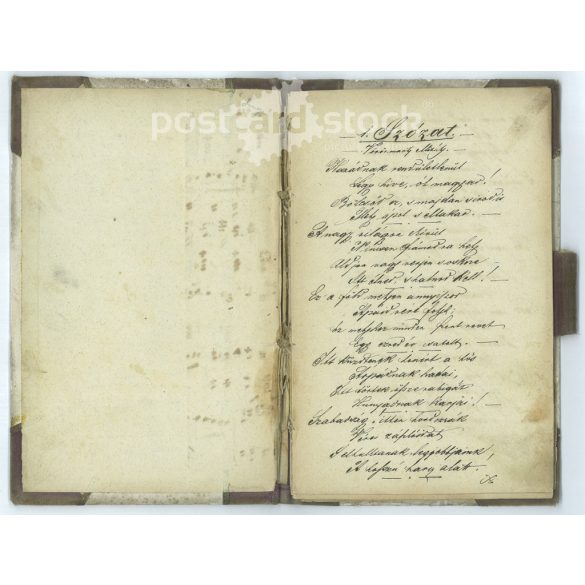 postcard stock
1. Szózat.
Vörösmarty Mihály.
Hazádnak rendületlenül
Légy hive, óh magyar!
Bölcsőd ez, s majdan sirod is
Mely ápol s eltakar. –
A nagy világon e kivül
Nincsen számodra hely
Áldjon vagy verjen sors keze
Itt élned, s halnod kell! –
Ez a föld melyen annyiszor
Apáid vére folyt;
ez melyhez minden szent nevet
Egy ezred év csatolt. –
Itt küzdtenek honért a hős
Árpádnak hadai,
Itt törtek össze rabigát
Hunyadnak karjai! –
Szabadság! itten hordozák
Véres zászlóidat
S elhullanak legjobbjaink,
A hosszu harcz alat.